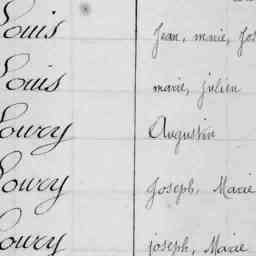 Louis Jean, marie, Jos
Louis marie, julien
Loury Augustin
Loury Joseph, Marie
Loury joseph, Marie